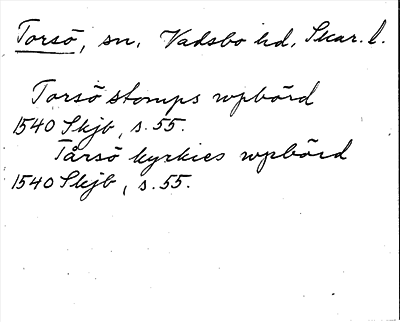 Torsö, sn. Vadsbo hd, Skar. l.
Torsö stomps wpbörd
1540 Skjb, s. 55.
Tårsö kyrkies wpbörd
1540 Skjb, s. 55.